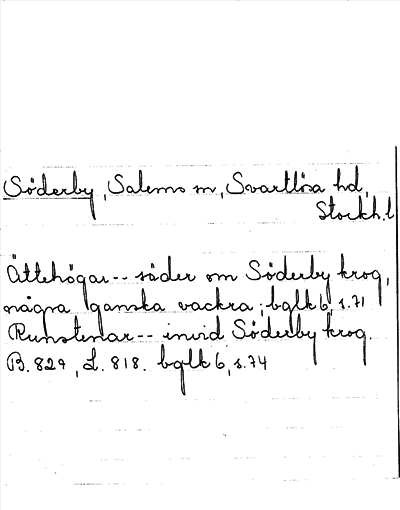 Söderby, Salems sn, Svartlösa hd,
Stockh.l
Ättehögar-- söder om Söderby krog,
några ganska vackra; bglk 6, s.71
Runstenar-- invid Söderby krog.
B. 829, L. 818. bglk 6, s.74